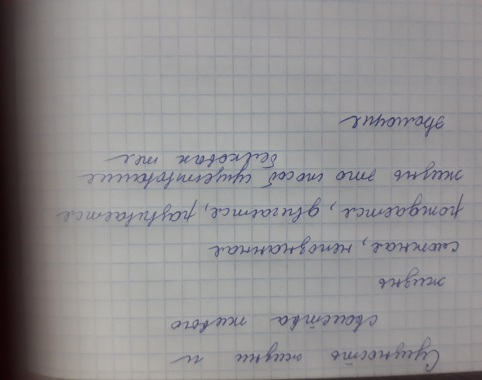 Сущность жизни и
свойства живого
жизнь
сложная, непознанная
рождается, двигается, развивается
жизнь это способ существование
белковах тел
эволюция